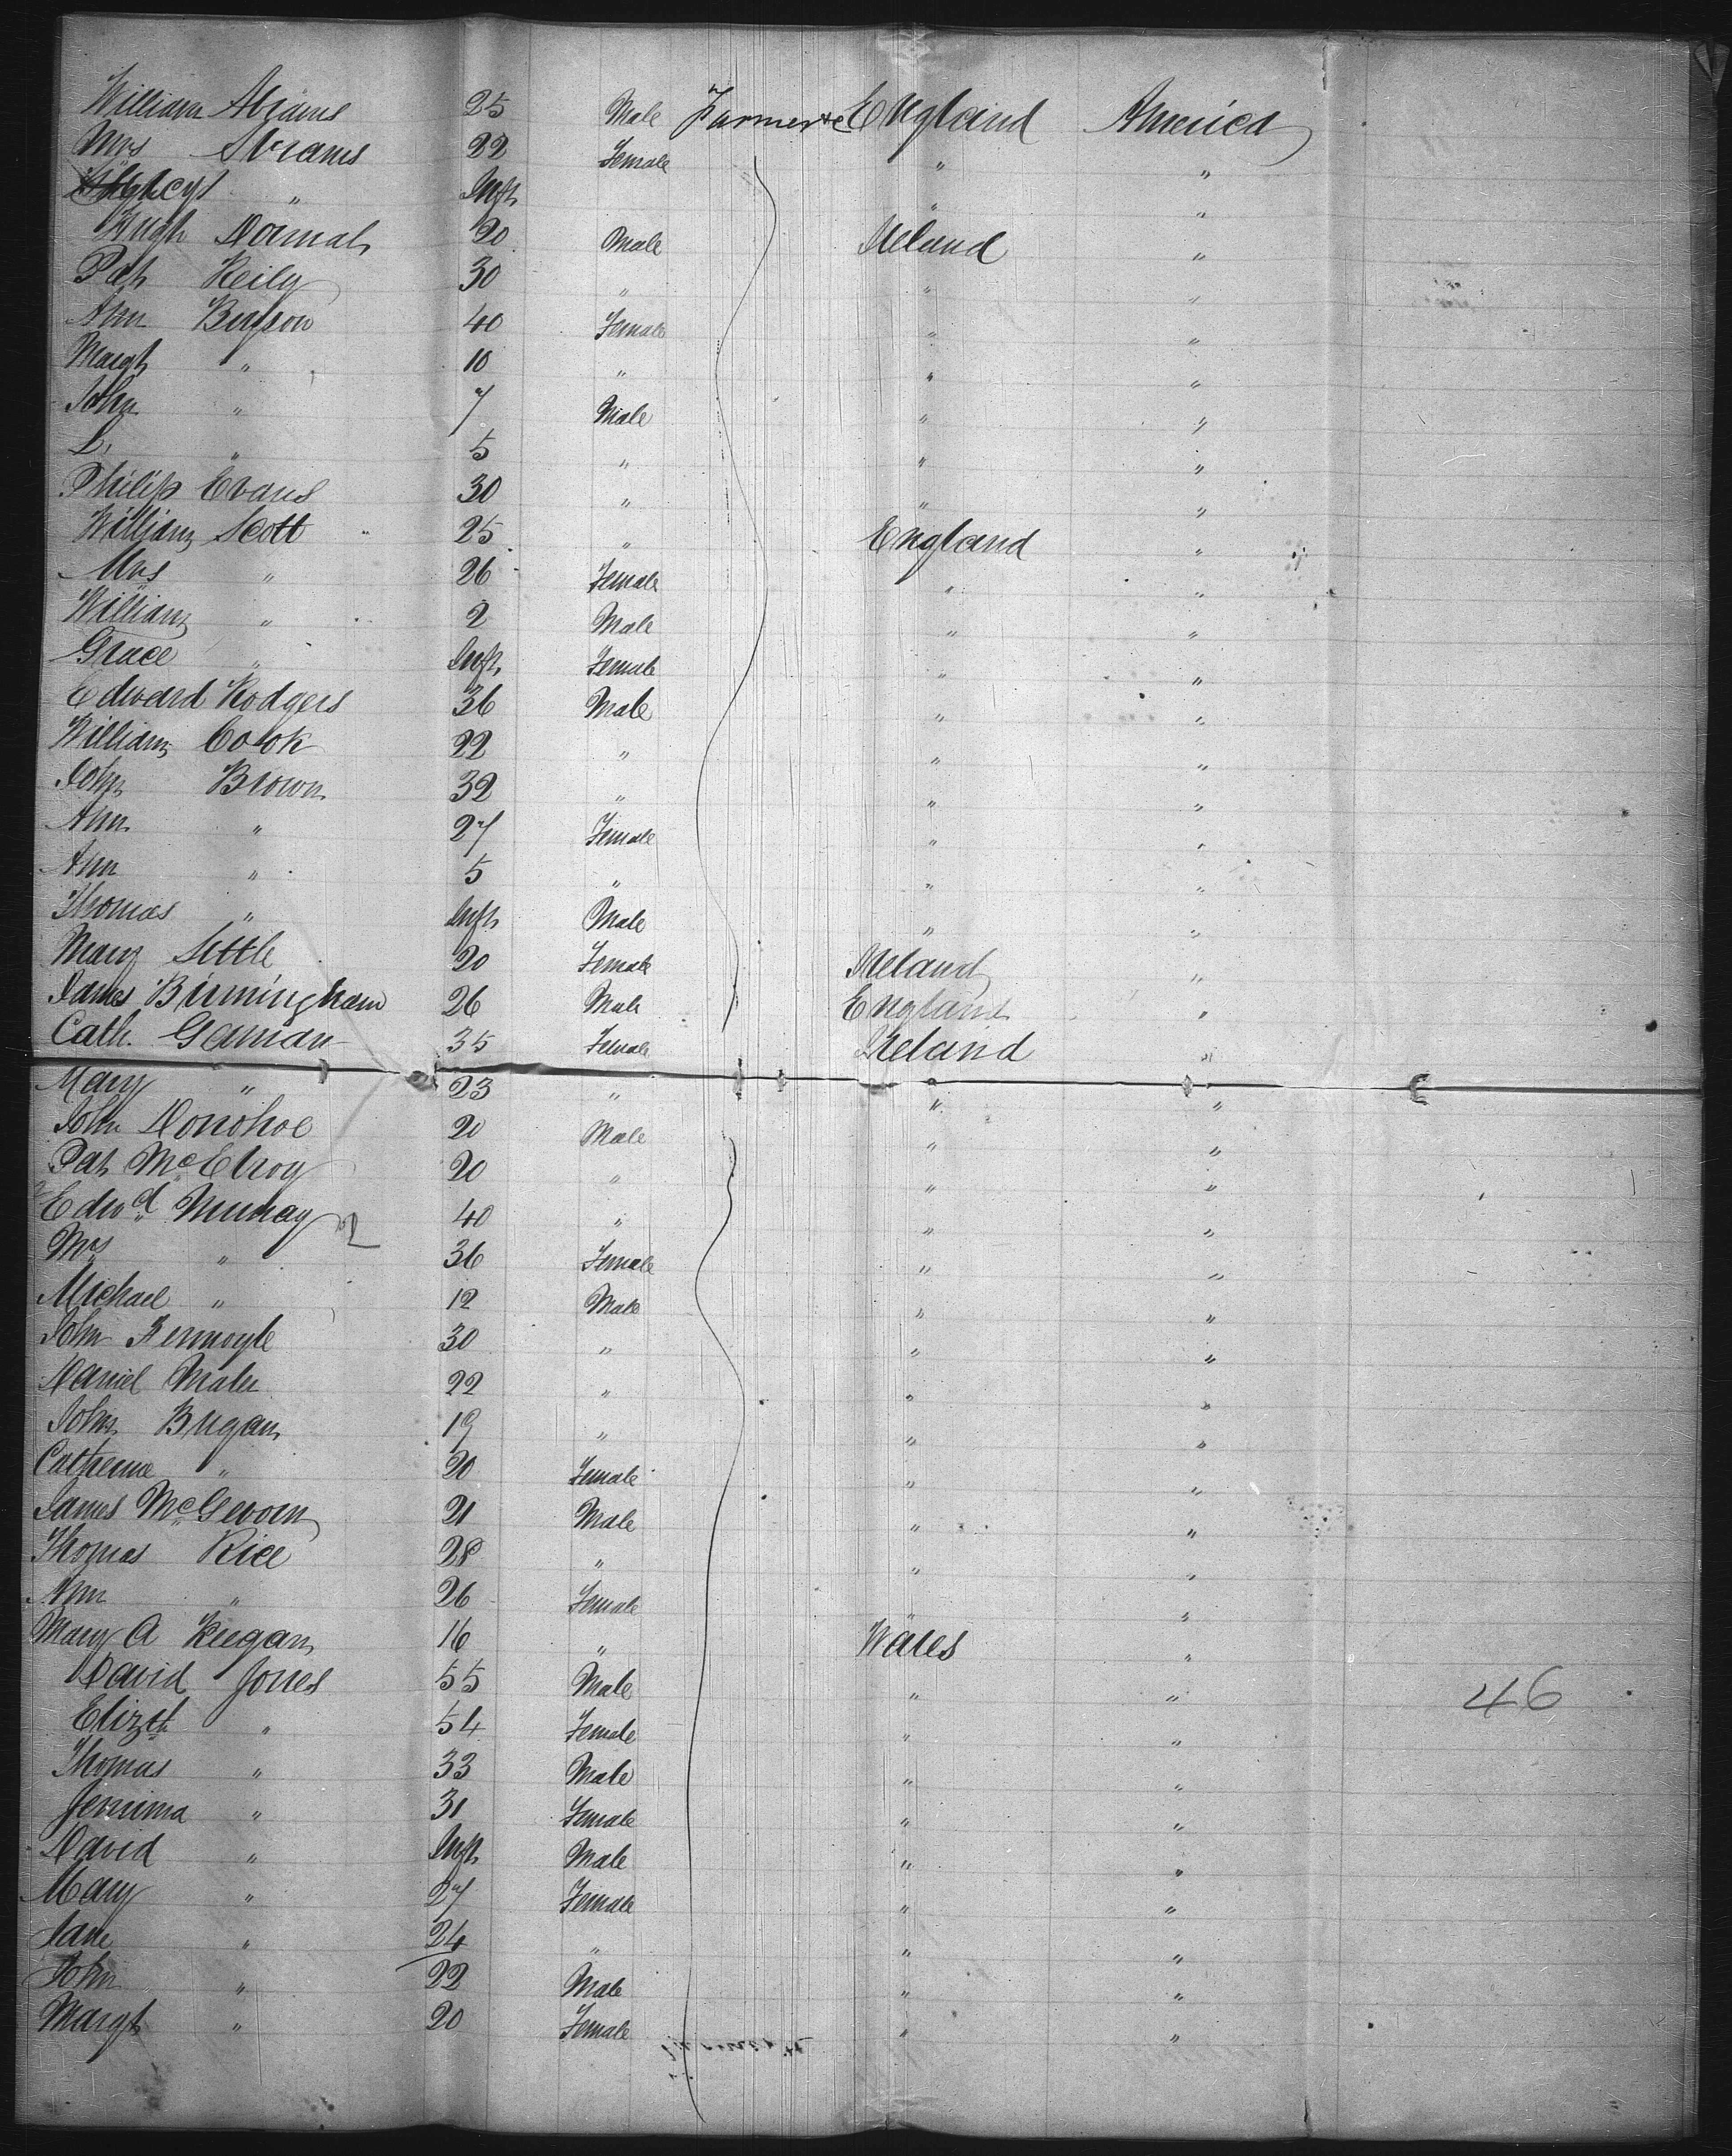 William Abrams 25 Male Farmer &c England America
Mrs Abrams 22 Female " "
" Inft " "
Hugh 20 Male Ireland "
Pat Reily 30 " " "
Ann Bryson 40 Female " "
Margt " 10 " " "
John " 7 Male " "
L. " 5 " " "
Philip Evans 30 " " "
William Scott 25 " England "
Mrs " 26 Female " "
William " 2 Male " "
Grace " Inft Female " "
Edward Rodgers 36 Male " "
William Cook 22 " " "
John Brown 32 " " "
Ann " 27 Female " "
Ann " 5 " " "
Thomas " Inft Male " "
Mary Settle 20 Female Ireland "
James Birmingham 26 Male England "
Cath. 35 Female Ireland "
Mary " 23 " " "
John Donohoe 20 Male " "
Pat McElroy 20 " " "
Edwd Murray 40 " " "
Mrs " 36 Female " "
Michael " 12 Male " "
John 30 " " "
Daniel Maher 22 " " "
John Bugan 19 " " "
Catherine " 20 Female " "
James McGevorn 21 Male " "
Thomas Rice 28 " " "
Ann " 26 Female " "
Mary A Keegan 16 " Wales "
David Jones 55 Male " " 46
Elizth " 54 Female " "
Thomas " 33 Male " "
Jemima " 31 Female " "
David " Inft Male " "
Mary " 27 Female " "
Jane " 24 " " "
John " 22 Male " "
Margt " 20 Female " "